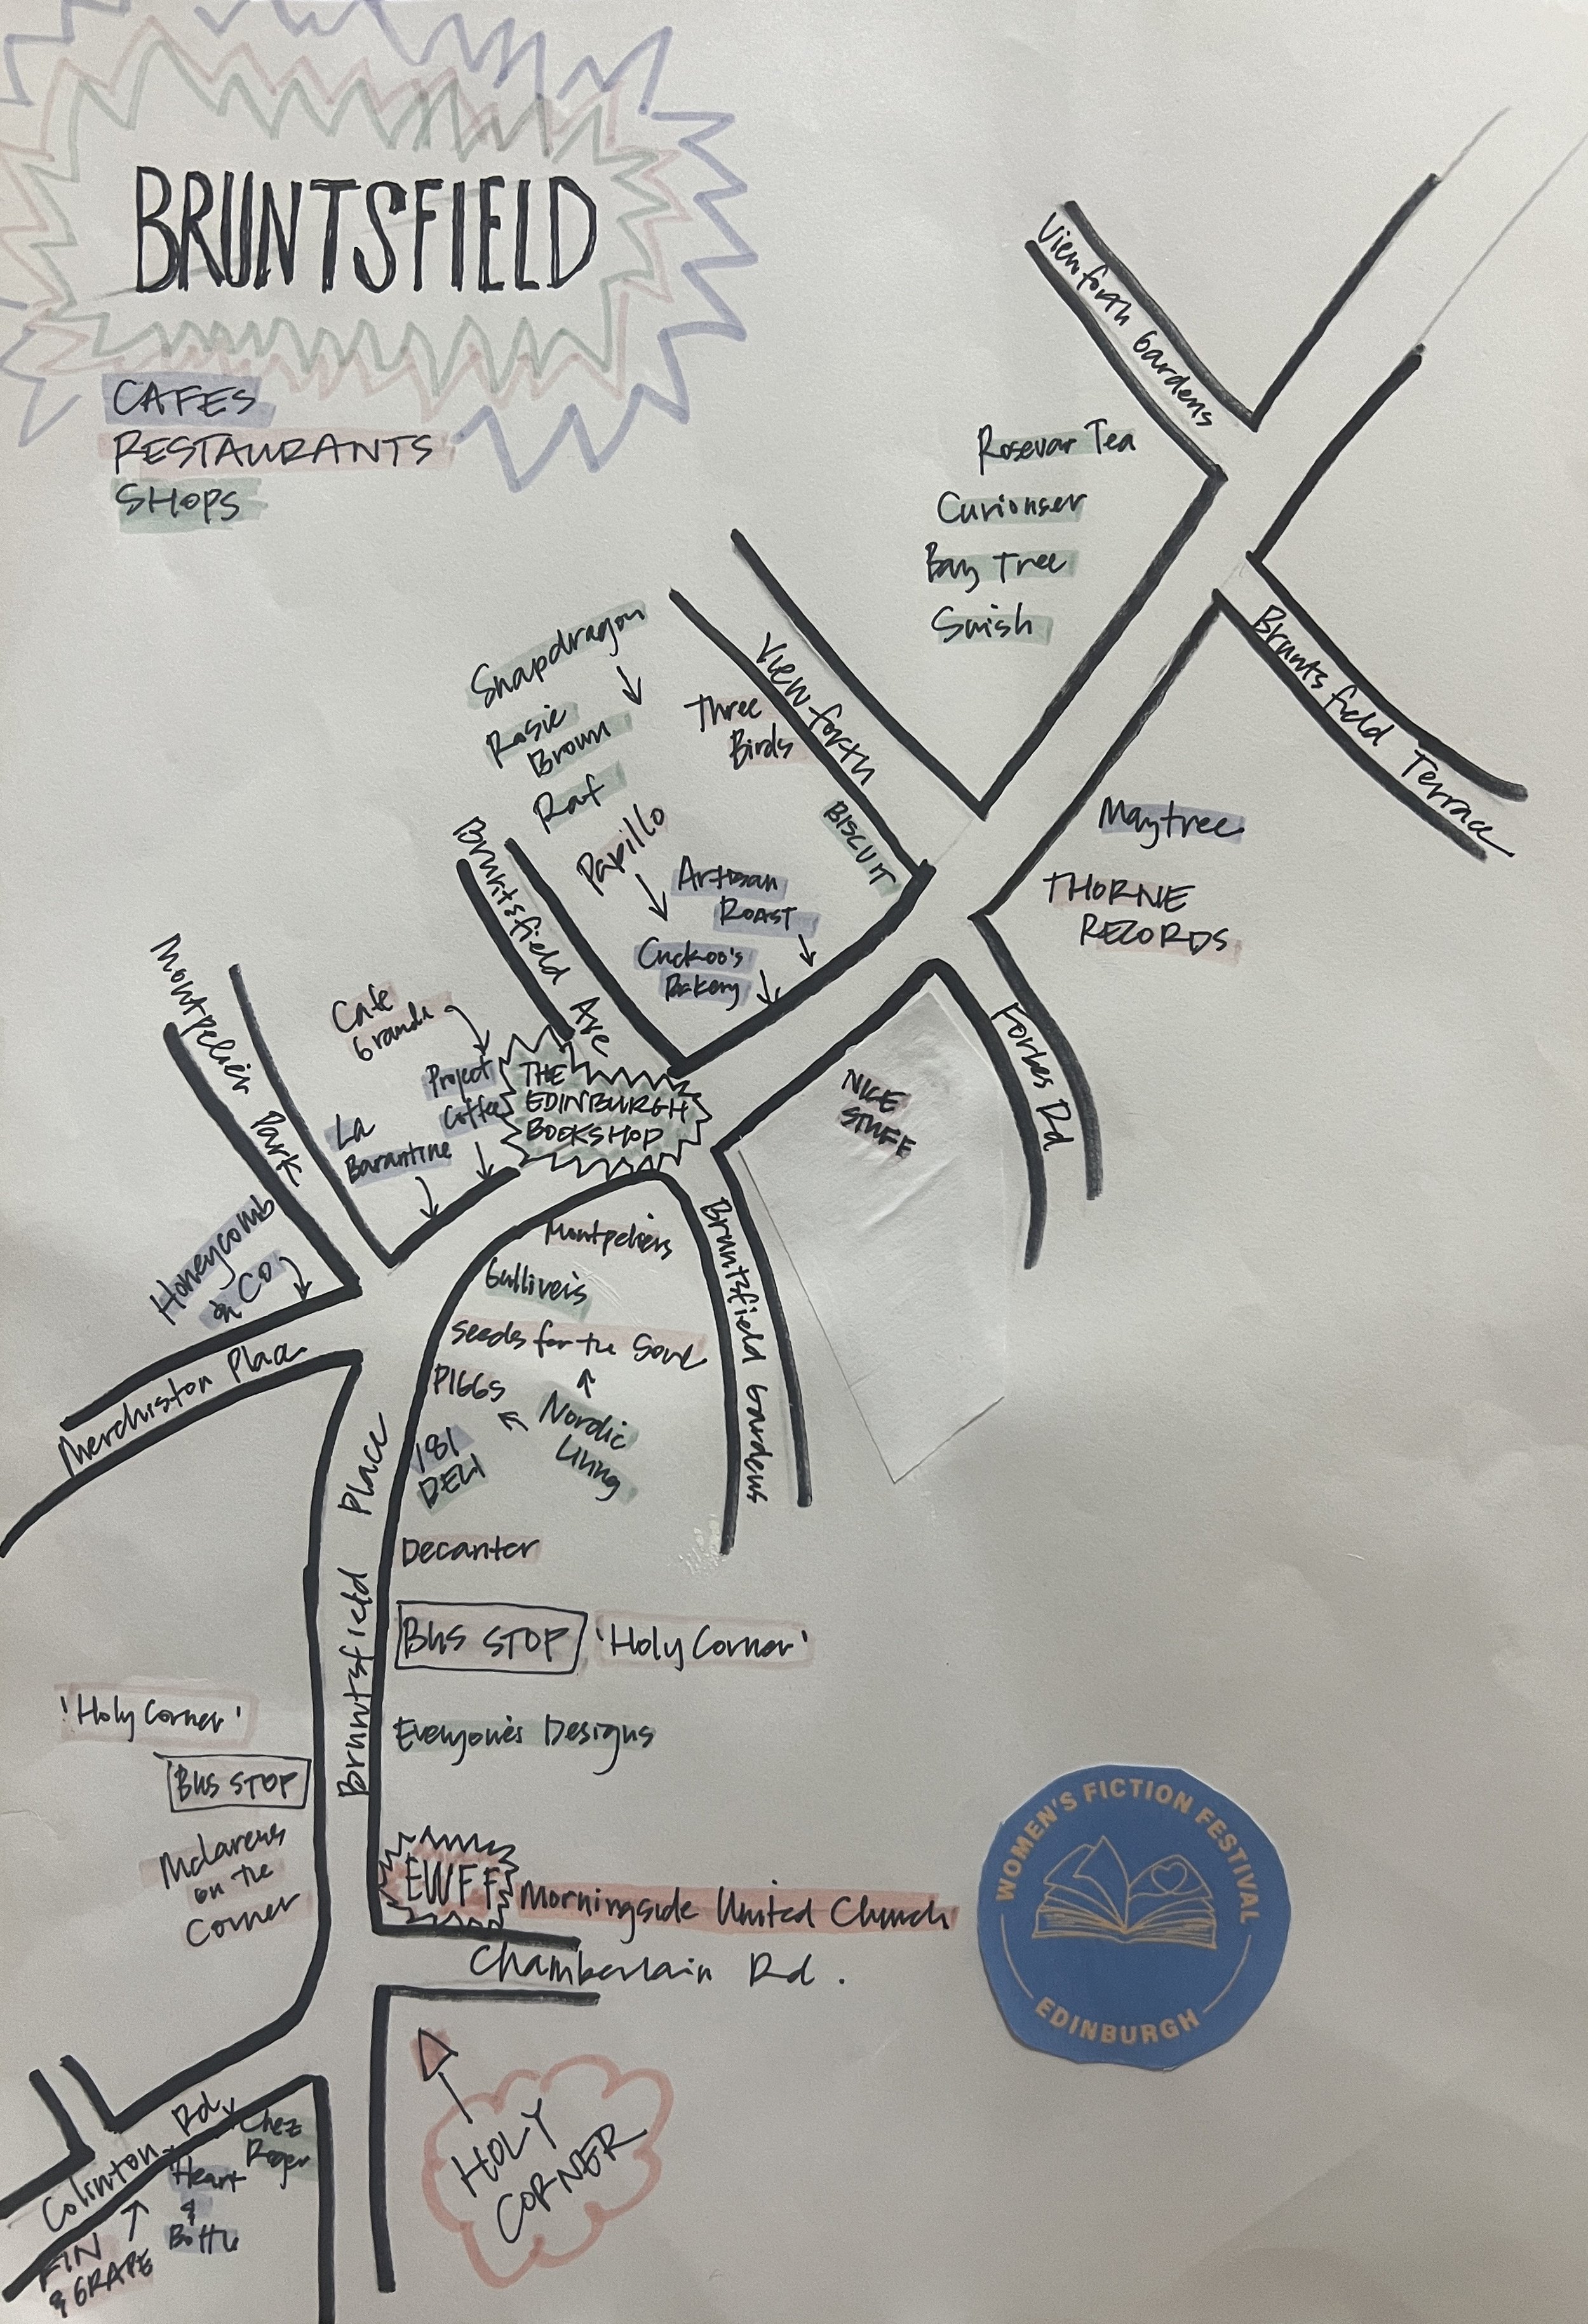 BRUNTSFIELD
CAFES
RESTAURANTS
SHOPS
Viewforth Gardens
Rosevar Tea
Curiouser
Bay Tree
Swish
Bruntsfield Terrace
Snapdragon
Rosie
Brown
Raf
Papillo
Three
Birds
Viewforth
BISCUIT
Artisan
ROAST
Cuckoo's
Bakery
Maytree
THORNE
RECORDS
Forbes Rd
NICE
STUFF
Bruntsfield Ave
Montpelier Park
Cafe
Grande
Project
Coffee
THE
EDINBURGH
BOOKSHOP
La
Barantine
Honeycomb
& Co
Merchiston Place
Montpeliers
Gulliver's
Seeds for the Soul
PIGGS
Nordic
Living
181
DELI
Bruntsfield Gardens
Decanter
Bruntsfield Place
BUS STOP 'Holy Corner'
'Holy Corner'
BUS STOP
Everyone's Designs
Mclarens
on the
Corner
EWFF Morningside United Church
Chamberlain Rd.
WOMEN'S FICTION FESTIVAL
EDINBURGH
HOLY
CORNER
Colinton Rd
Chez
Roger
Heart
&
Bottle
FIN
& GRAPE